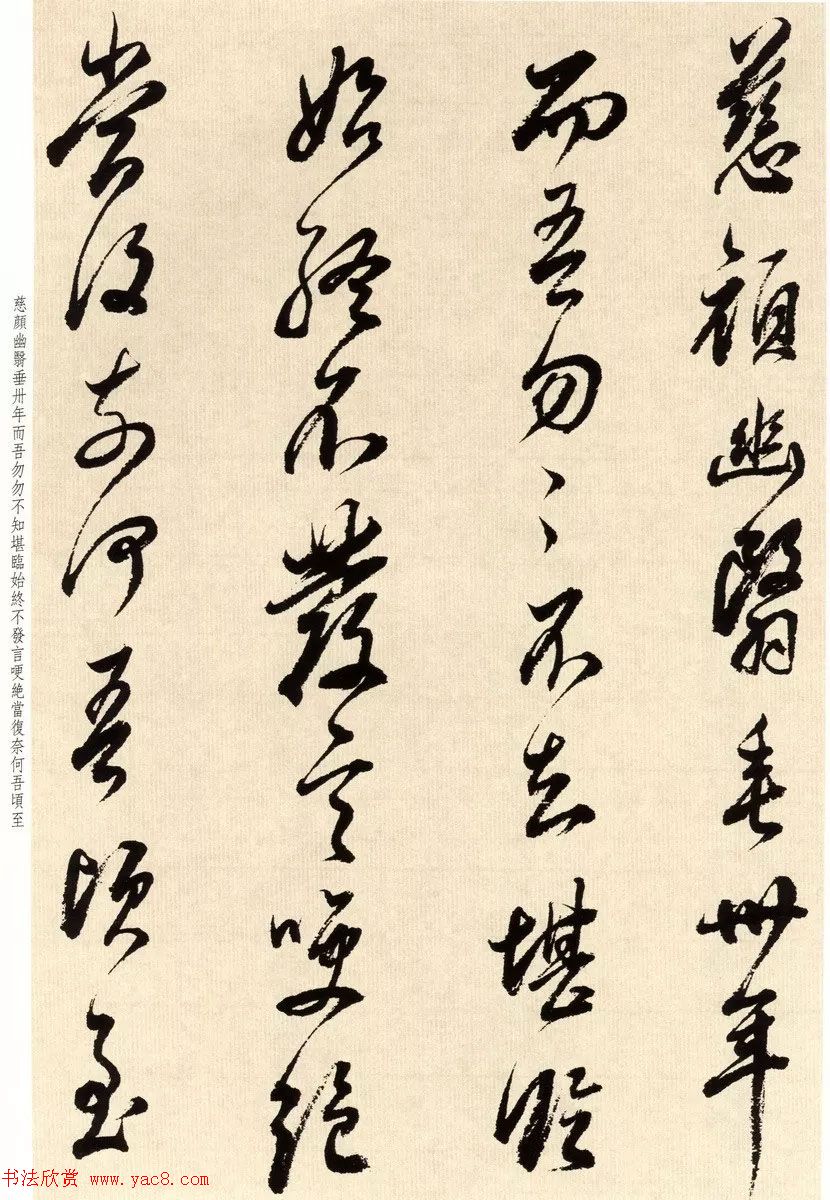 慈顔幽翳垂卅年
而吾勿〻不知堪臨
始終不發言哽絶
當復奈何吾頃至
慈顔幽翳垂卅年而吾勿勿不知堪臨始終不發言哽絶當復奈何吾頃至
书法欣赏 www.yac8.com